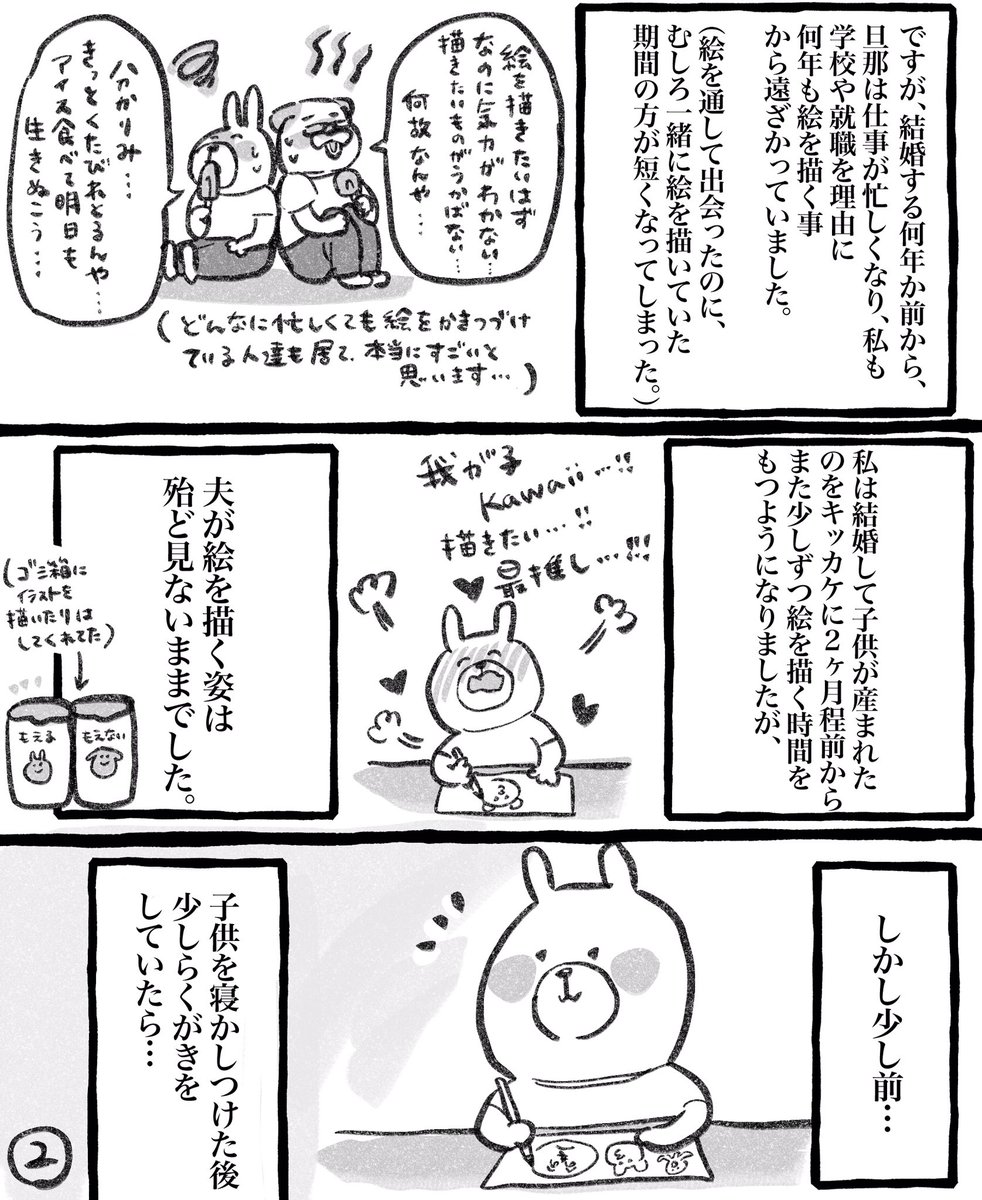 ですが、結婚する何年か前から、
旦那は仕事が忙しくなり、私も
学校や就職を理由に
何年も絵を描く事
から遠ざかっていました。
(絵を通して出会ったのに、
むしろ一緒に絵を描いていた
期間の方が短くなってしまった。)
絵を描きたいはず
なのに気力がわかない…
描きたいものがうかばない…
何故なんや…
ハ分かりみ…
きっとくたびれとるんや…
アイス食べて明日も
生きぬこう…
(どんなに忙しくても絵をかきつづけ
ている人達も居て、本当にすごいと
思います…)
私は結婚して子供が産まれた
のをキッカケに2ヶ月程前から
また少しずつ絵を描く時間を
もつようになりましたが、
我が子
Kawaii…!!
描きたい…!!
最推し…!!!
夫が絵を描く姿は
殆ど見ないままでした。
(ゴミ箱に
イラストを
描いたりは
してくれてた)
もえる
もえない
しかし少し前…
子供を寝かしつけた後
少しらくがきを
していたら…
2